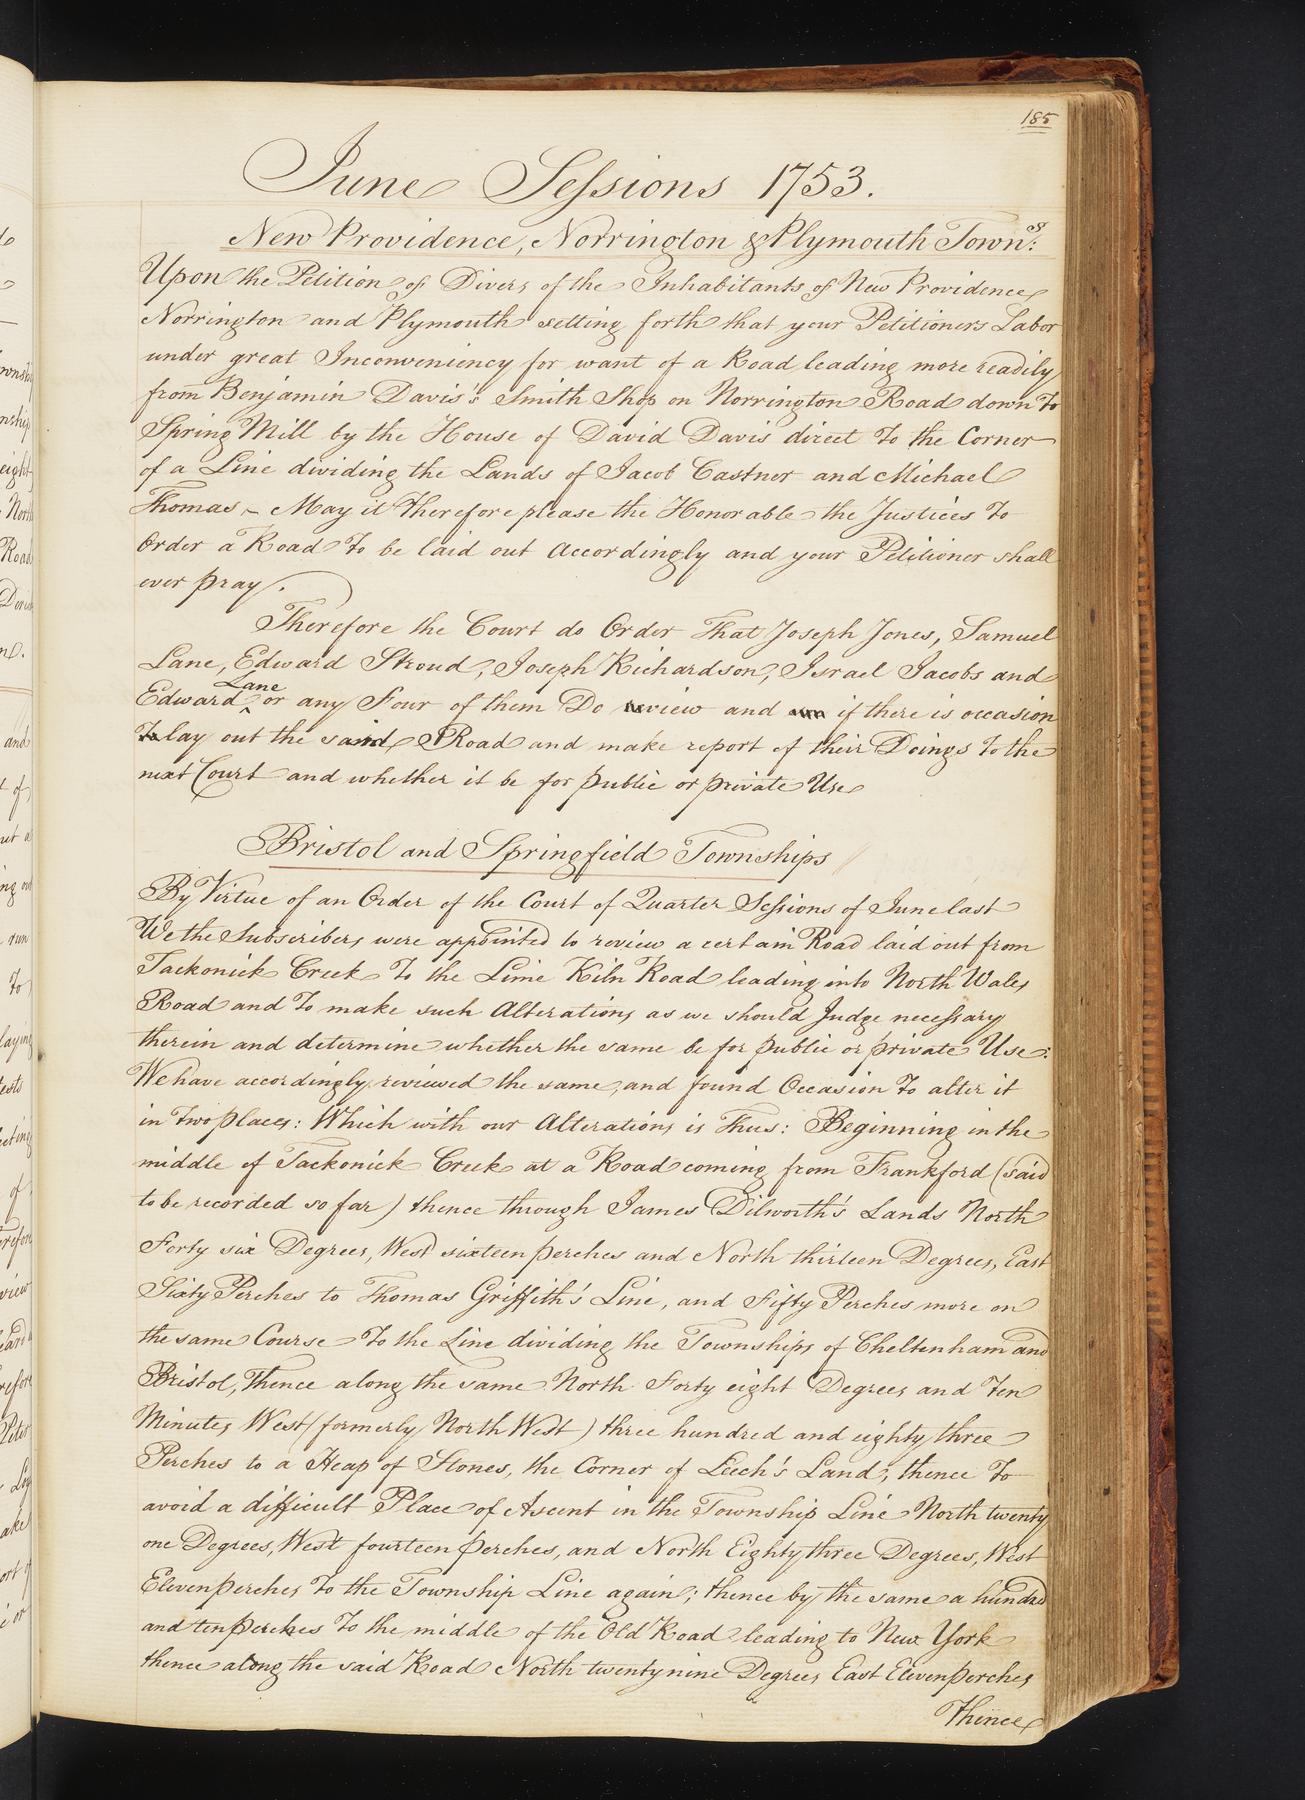 185
June Sessions 1753.
New Providence, Norrington & Plymouth Towns:
Upon the Petition of Divers of the Inhabitants of New Providence
Norrington and Plymouth setting forth that your Petitioners Labor
under great Inconveniency for want of a Road leading more readily
from Benjamin Davis's Smith Shop on Norrington Road down To
Spring Mill by the House of David Davis direct To the Corner
of a Line dividing the Lands of Jacob Castner and Michael
Thomas - May it Therefore please the Honorable the Justices To
Order a Road To be laid out accordingly and your Petitioner shall
ever pray.
Therefore the Court do Order That Joseph Jones, Samuel
Lane, Edward Stroud, Joseph Richardson, Israel Jacobs and
Edward Lane or any Four of them Do review and if there is occasion
To lay out the said Road and make report of their Doings To the
next Court and whether it be for public or private Use
Bristol and Springfield Townships
By Virtue of an Order of the Court of Quarter Sessions of June last
We the Subscribers were appointed to review a certain Road laid out from
Tackonick Creek To the Lime Kiln Road leading into North Wales
Road and To make such Alterations as we should Judge necessary
therein and determine whether the same be for public or private Use:
We have accordingly reviewed the same, and found Occasion To alter it
in Two places: Which with our Alterations is Thus: Beginning in the
middle of Tackonick Creek at a Road coming from Frankford (said
to be recorded so far) thence through James Dilworth's Lands North
Forty six Degrees, West sixteen perches and North thirteen Degrees, East
Sixty Perches to Thomas Griffith's Line, and Fifty Perches more on
the same Course To the Line dividing the Townships of Cheltenham and
Bristol, Thence along the same North Forty eight Degrees and Ten
Minutes West (formerly North West) three hundred and eighty three
Perches to a Heap of Stones, the Corner of Leech's Land; thence To
avoid a difficult Place of Ascent in the Township Line North twenty
one Degrees, West fourteen perches, and North Eighty three Degrees, West
Eleven perches To the Township Line again; thence by the same a hundred
and ten perches To the middle of the Old Road leading to New York
thence along the said Road North twenty nine Degrees East Eleven perches
Thence